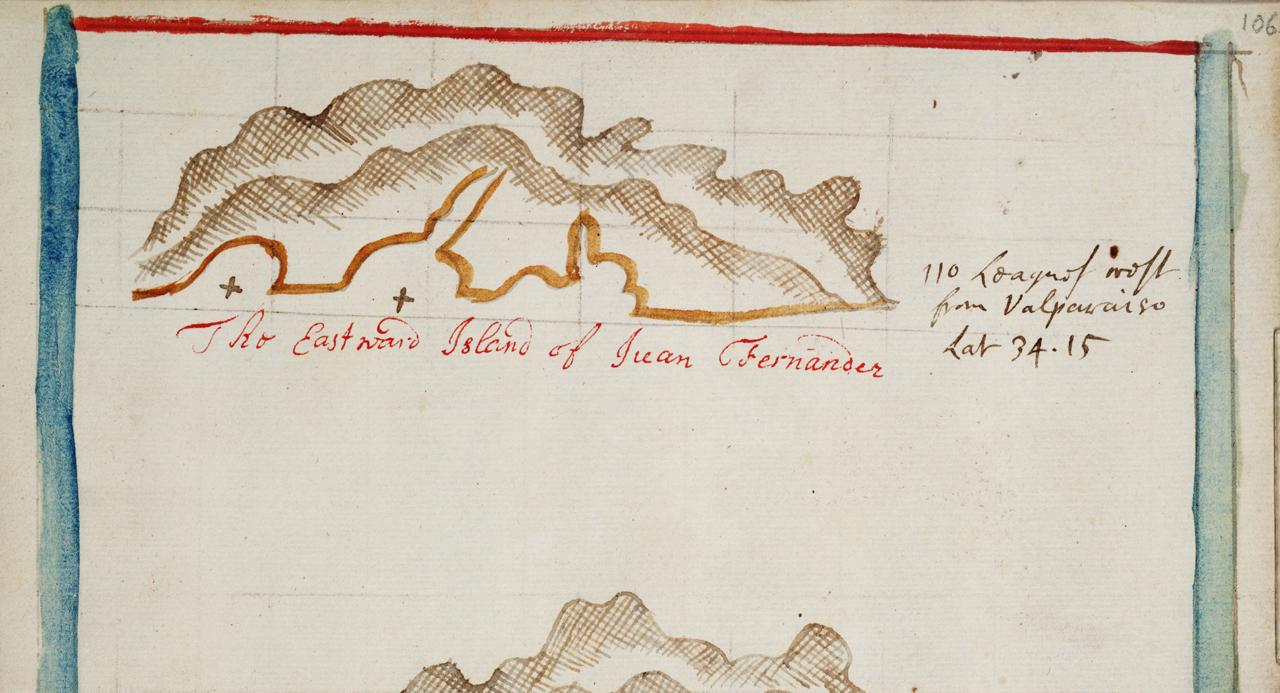 106
110 Leagues west
from Valparaiso
Lat 34.15
The Eastward Island of Juan Fernandez